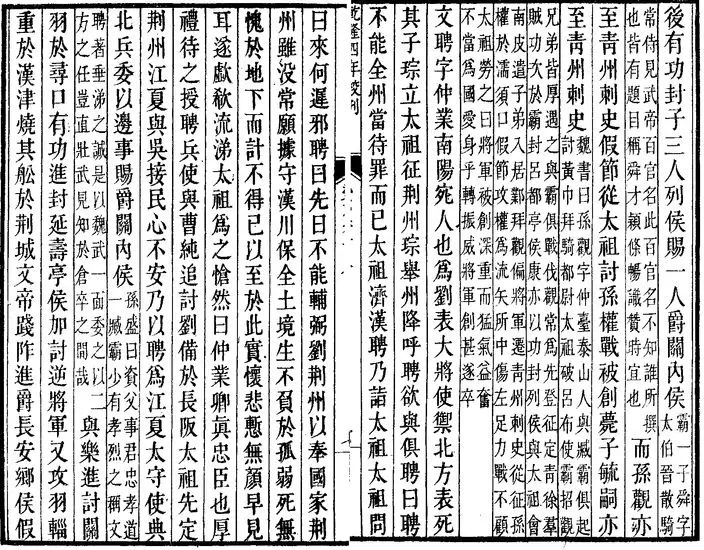 後有功封子三人列侯賜一人爵關內侯
霸一子舜字
太伯晉散騎
常侍見武帝百官名此百官名不知誰所撰
也皆有題目稱舜才穎條暢識贊時宜也
而孫觀亦
至青州刺史假節從太祖討孫權戰被創薨子毓嗣亦
至青州刺史
魏書曰孫觀字仲臺泰山人與臧霸俱起
討黃巾拜騎都尉太祖破呂布使霸招觀
兄弟皆厚遇之與霸俱戰伐觀常爲先登征定青徐羣
賊功次於霸封呂都亭侯康亦以功封列侯與太祖會
南皮遣子弟入居鄴拜觀偏將軍遷青州刺史從征孫
權於濡須口假節攻權爲流矢所中傷左足力戰不顧
太祖勞之曰將軍被創深重而猛氣益奮
不當爲國愛身乎轉振威將軍創甚遂卒
文聘字仲業南陽宛人也爲劉表大將使禦北方表死
其子琮立太祖征荆州琮舉州降呼聘欲與俱聘曰聘
不能全州當待罪而已太祖濟漢聘乃詣太祖太祖問
乾隆四年校刊
曰來何遲邪聘曰先日不能輔弼劉荆州以奉國家荆
州雖没常願據守漢川保全土境生不負於孤弱死無
愧於地下而計不得已以至於此實懷悲慙無顏早見
耳遂歔欷流涕太祖爲之愴然曰仲業卿真忠臣也厚
禮待之授聘兵使與曹純追討劉備於長阪太祖先定
荆州江夏與吳接民心不安乃以聘爲江夏太守使典
北兵委以邊事賜爵關內侯
孫盛曰資父事君忠孝道
一臧霸少有孝烈之稱文
聘著垂涕之誠是以魏武一面委之以二
方之任豈直壯武見知於倉卒之間哉
與樂進討關
羽於尋口有功進封延壽亭侯加討逆將軍又攻羽輜
重於漢津燒其舩於荆城文帝踐阼進爵長安鄉侯假